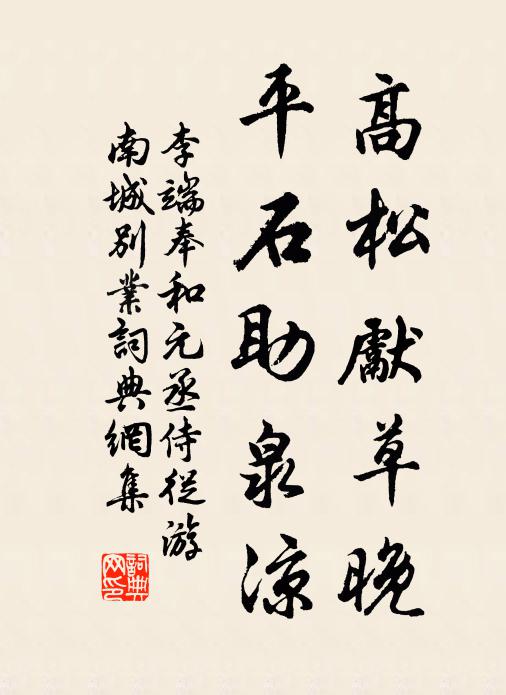 高松獻草晚
平石助泉涼
李端奉和元丞侍從游
南城別業詞典網集
詞典
网印